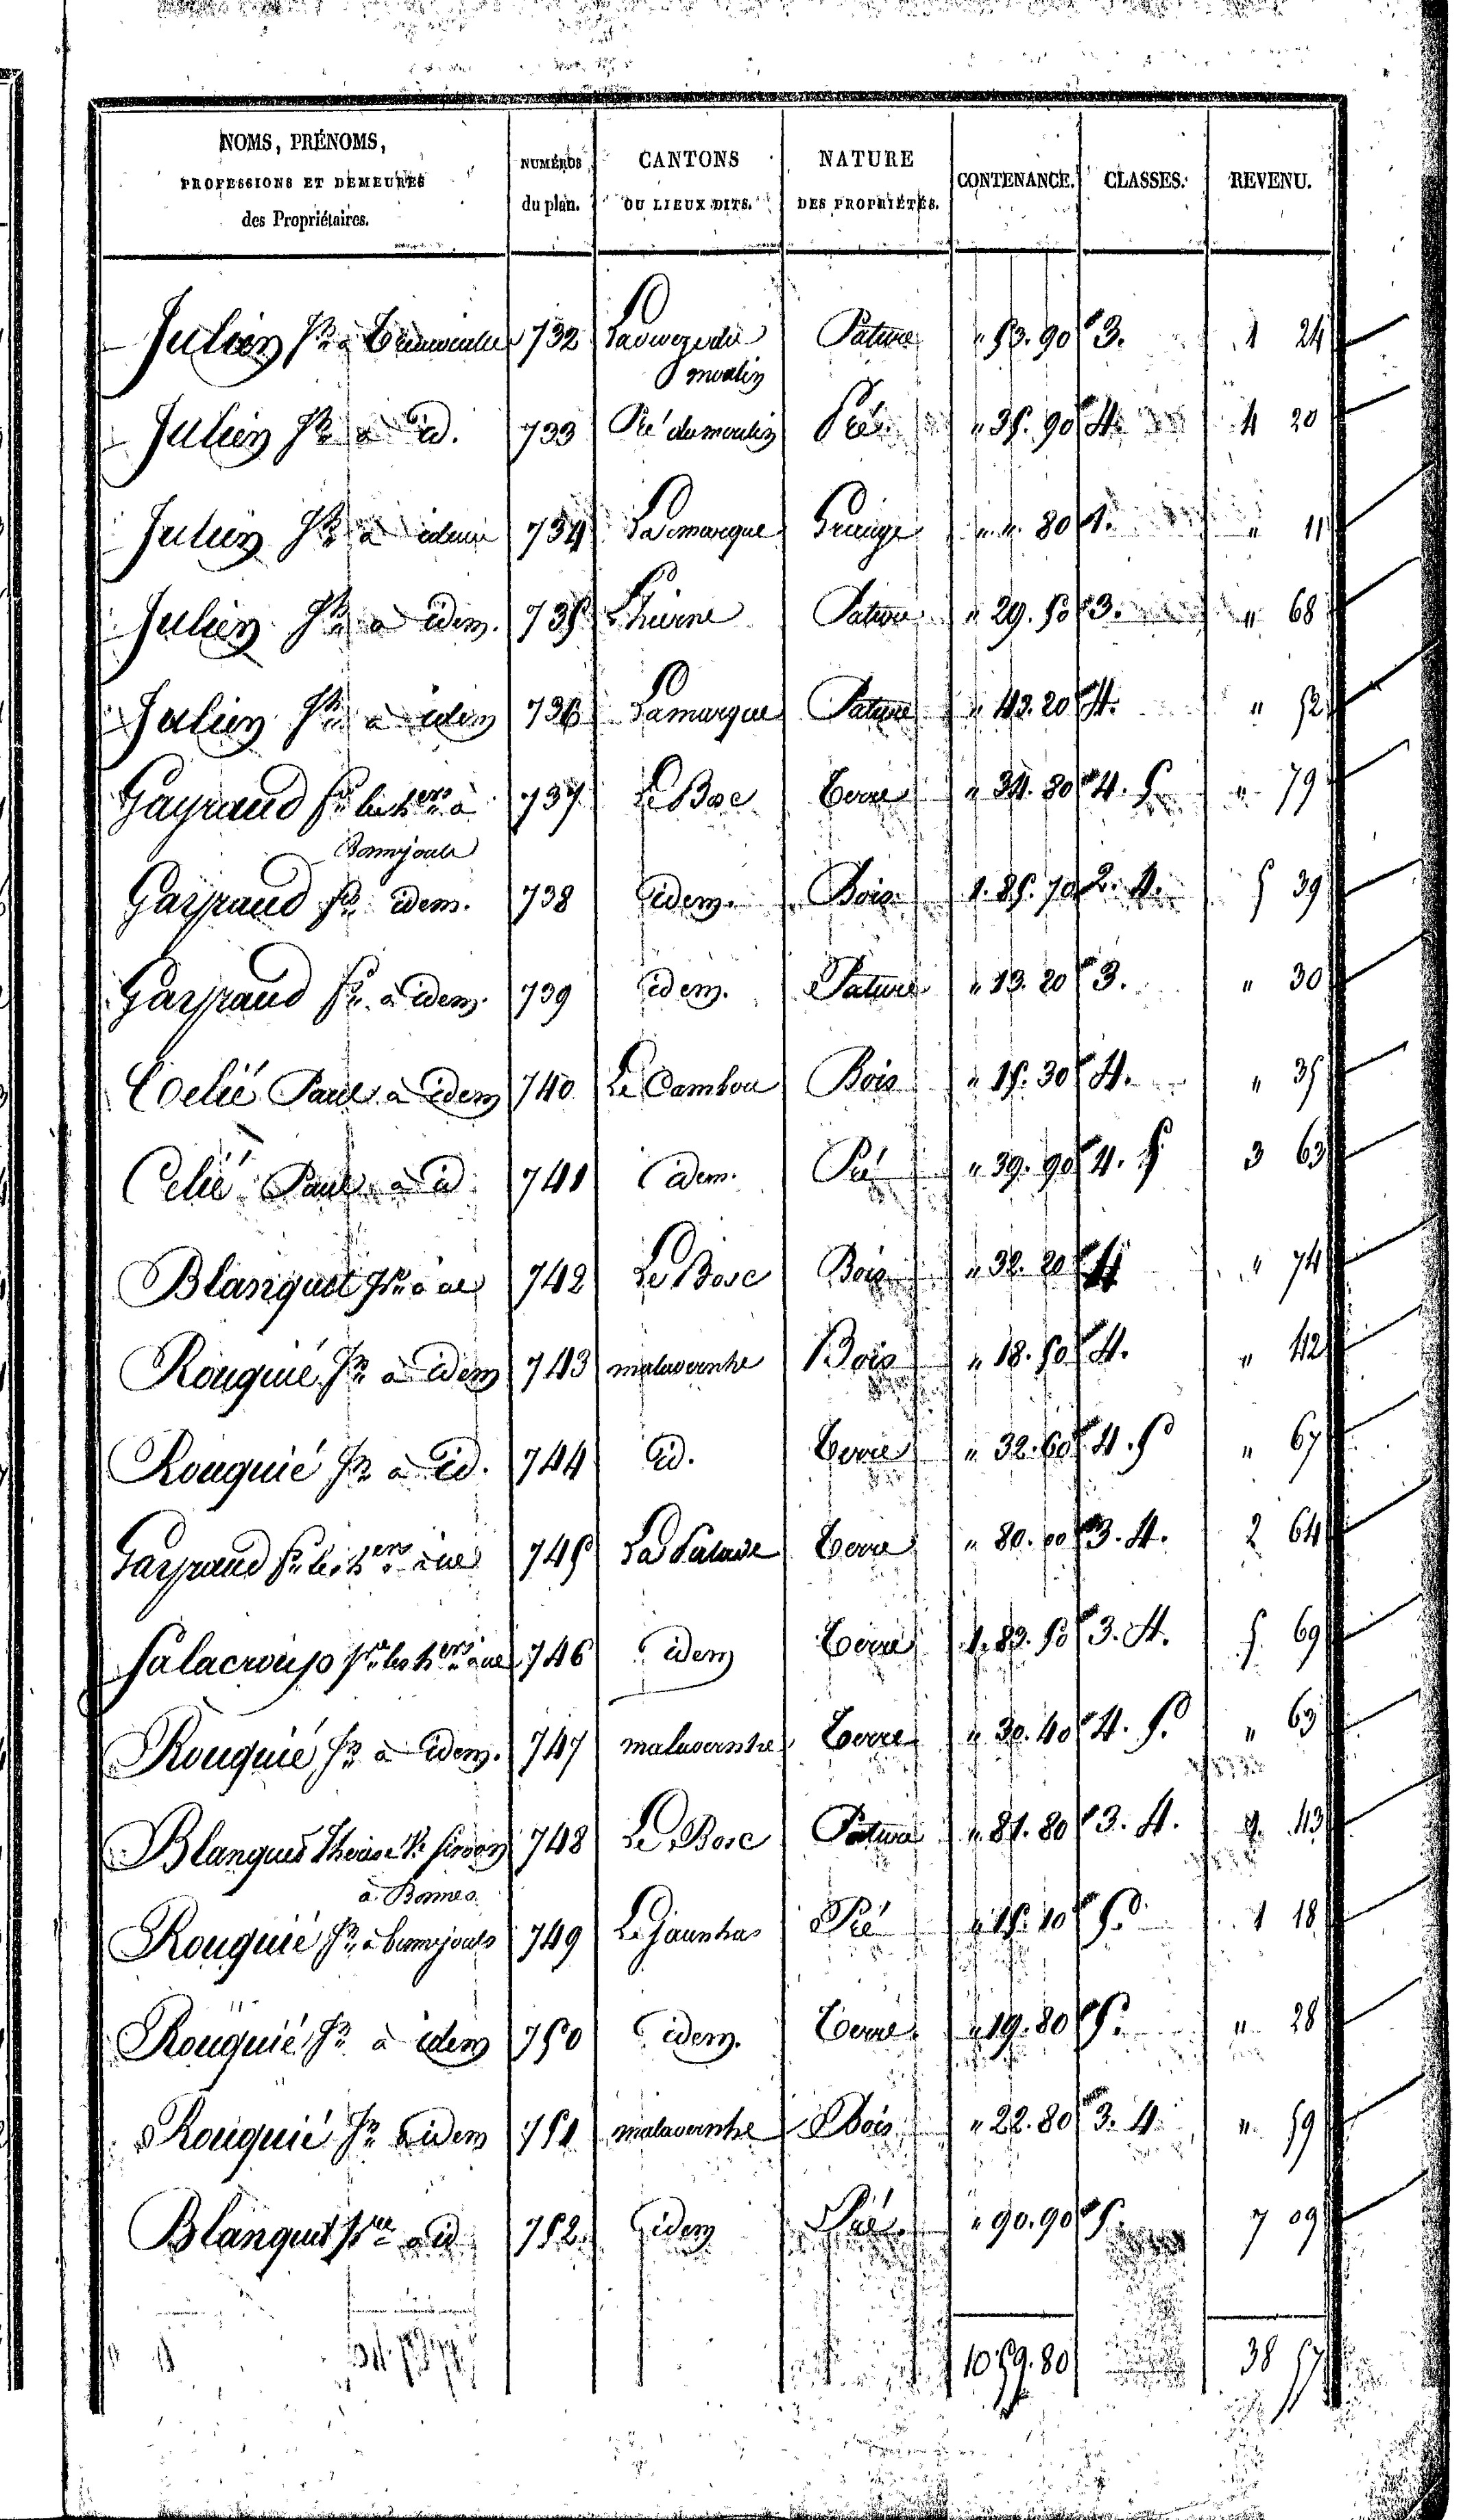 NOMS, PRÉNOMS, PROFESSIONS ET DEMEURES des Propriétaires. NUMÉROS du plan. CANTONS OU LIEUX DITS. NATURE DES PROPRIÉTÉS. CONTENANCE. CLASSES. REVENU.
Julien Jn à 732 moulin Pature " 53. 90 3. 1 24
Julien Jn à id. 733 Pré du moulin Pré " 35. 90 4. 4 20
Julien Jn à idem 734 Lamarque Grange " " 80 1. " 11
Julien Jn à idem. 735 Pature " 29. 50 3. " 68
Julien Jn à idem 736 Lamarque Pature " 43. 20 4. " 52
Gayraud fs les hers à 737 Le Bosc Terre " 34. 80 4. 5 " 79
Bonnejouls
Gayraud fs idem. 738 idem. Bois 1. 85. 70 2. 4. 5 39
Gayraud fs à idem. 739 idem. Pature " 13. 20 3. " 30
Celié Paul à idem 740 Le Cambou Bois " 15. 30 4. " 35
Celié Paul à id 741 idem. Pré " 39. 90 4. 5 3 63
Blanquet à id 742 Le Bosc Bois " 32. 20 4 " 74
Rouquié Jn à idem 743 malavernhe Bois " 18. 50 4. " 42
Rouquié Jn à id. 744 id. Terre " 32. 60 4. 5 " 67
Gayraud fs les hers à id 745 Terre " 80. 00 3. 4. 2 64
Salacroup les hers à id 746 idem Terre 1. 83. 50 3. 4. 5 69
Rouquié Jn à idem. 747 malavernhe Terre " 30. 40 4. 5. " 63
Blanquet Thérèse Ve 748 Le Bosc Pature " 81. 80 3. 4. 1 43
à Bonnes
Rouquié Jn à bonnejouls 749 Pré " 15. 10 5. 1 18
Rouquié Jn à idem 750 idem. Terre " 19. 80 5. " 28
Rouquié Jn à idem 751 malavernhe Bois " 22. 80 3. 4 " 59
Blanquet à id 752 idem Pré " 90. 90 5. 7 09
10 59. 80 38 57